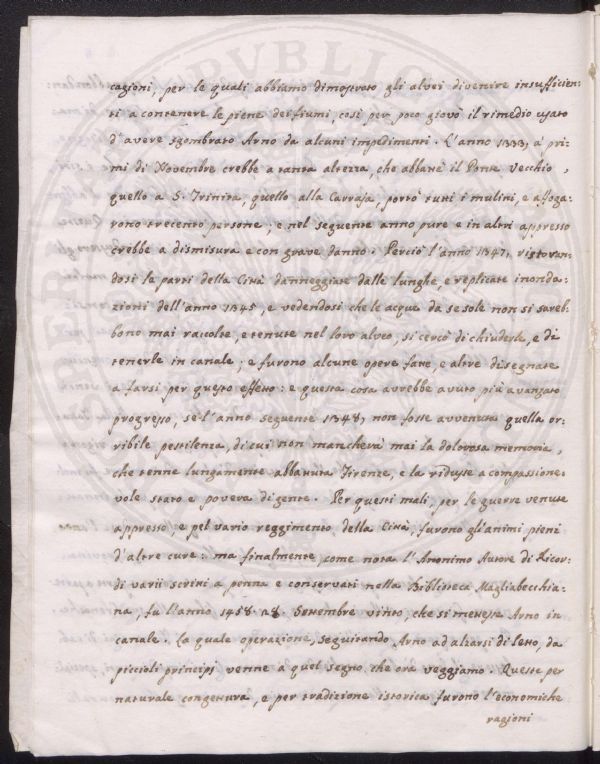 cagioni, per le quali abbiamo dimostrato gli alvei divenire insufficien-
ti a contenere le piene dei fiumi, così per poco giovò il rimedio usato
d'avere sgombrato Arno da alcuni impedimenti. L'anno 1333, a' pri-
mi di Novembre crebbe a tanta altezza, che abbattè il Ponte Vecchio,
quello a S. Trinita, quello alla Carraja, portò tutti i mulini, e affoga-
rono trecento persone, e nel seguente anno pure e in altri appresso
crebbe a dismisura e con grave danno. Perciò l'anno 1347, ristoran-
dosi le parti della Città danneggiate dalle lunghe, e replicate inonda-
zioni dell'anno 1345, e vedendosi che le acque da se sole non si sareb-
bono mai raccolte, e tenute nel loro alveo, si cercò di chiuderle, e di
tenerle in canale, e furono alcune opere fatte, e altre disegnate
a farsi per questo effetto: e questa cosa avrebbe avuto più avanzato
progresso, se l'anno seguente 1348, non fosse avvenuta quella or-
ribile pestilenza, di cui non mancherà mai la dolorosa memoria,
che tenne lungamente abbattuta Firenze, e la ridusse a compassione-
vole stato e povera di gente. Per questi mali, per le guerre venute
appresso, e pel vario reggimento della Città, furono gl'animi pieni
d'altre cure: ma finalmente, come nota l'Anonimo Autore di Ricor-
di varii scritti a penna e conservati nella Biblioteca Magliabecchia-
na, fu l'anno 1458 a 8. Settembre vinto, che si mettesse Arno in
canale. La quale operazione, seguitando Arno ad alzarsi di letto, da
piccioli principj venne a quel segno che ora veggiamo. Queste per
naturale congettura, e per tradizione istorica furono l'economiche
ragioni
PVBLICA